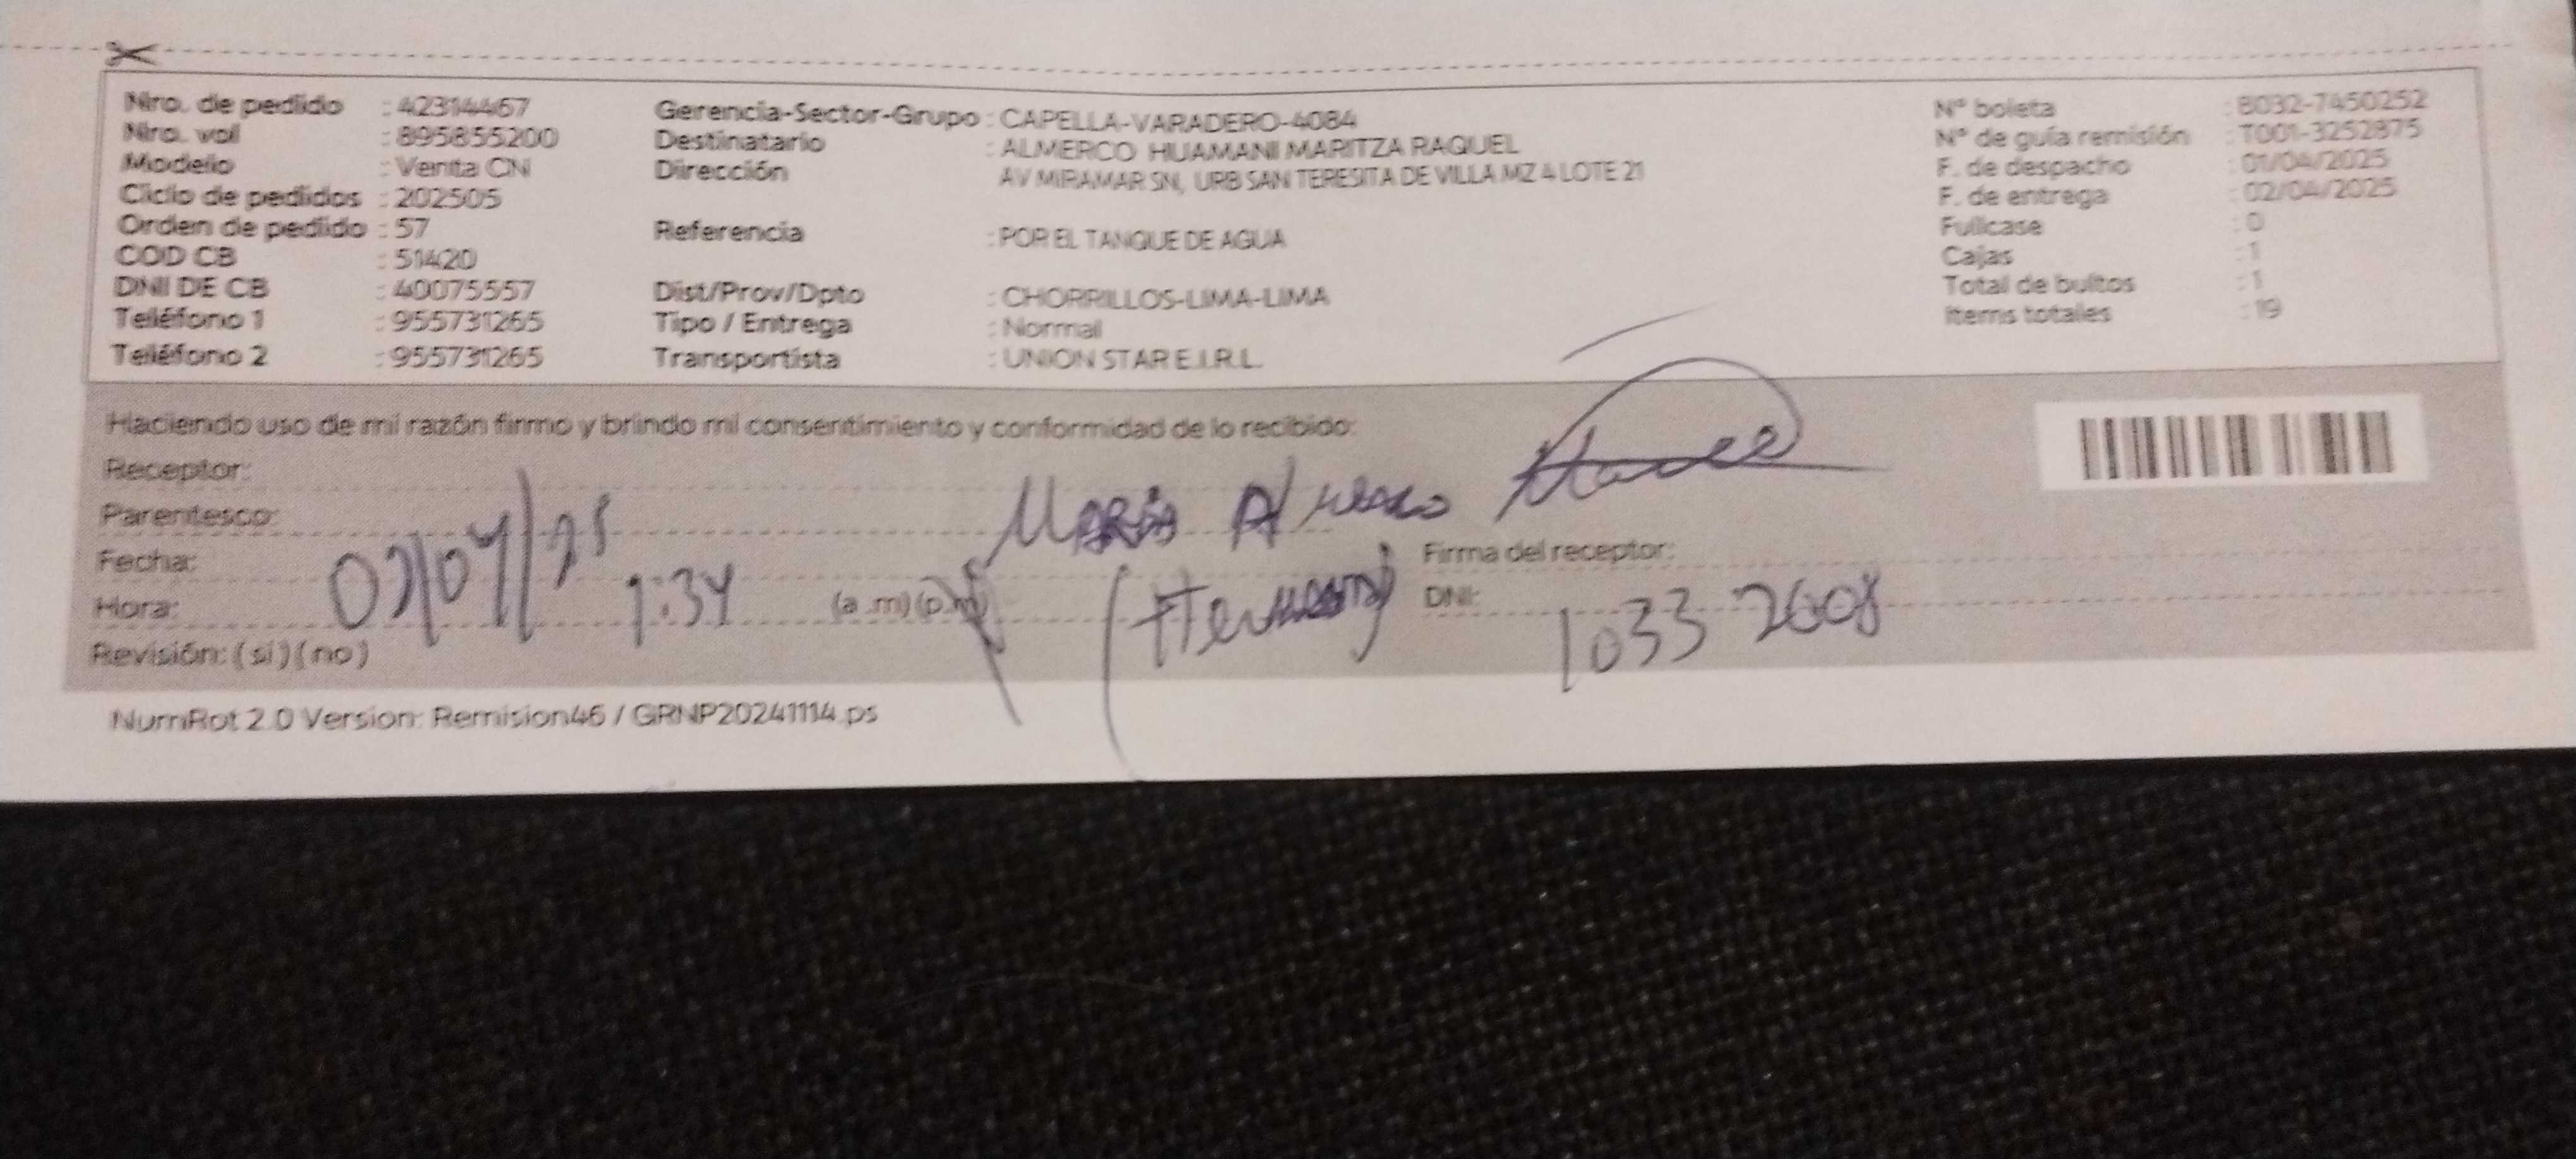 Nro. de pedido : 42314467
Nro. vol : 895855200
Modelo : Venta CN
Ciclo de pedidos : 202505
Orden de pedido : 57
COD CB : 51420
DNI DE CB : 40075557
Teléfono 1 : 955731265
Teléfono 2 : 955731265
Gerencia-Sector-Grupo : CAPELLA-VARADERO-4084
Destinatario : ALMERCO HUAMANI MARITZA RAQUEL
Dirección AV MIRAMAR SN, URB SAN TERESITA DE VILLA MZ 4 LOTE 21
Referencia : POR EL TANQUE DE AGUA
Dist/Prov/Dpto : CHORRILLOS-LIMA-LIMA
Tipo / Entrega : Normal
Transportista : UNION STAR E.I.R.L.
N° boleta : B032-7450252
N° de guía remisión : T001-3252875
F. de despacho : 01/04/2025
F. de entrega : 02/04/2025
Fullcase : 0
Cajas : 1
Total de bultos : 1
Items totales : 19
Haciendo uso de mi razón firmo y brindo mi consentimiento y conformidad de lo recibido:
Receptor:
Parentesco: María Almerco
Fecha: 02/04/25 Firma del receptor:
Hora: 1:34 (a .m) (p.m) (Hermana) DNI: 10332608
Revisión: ( si ) ( no )
NumRot 2.0 Version: Remision46 / GRNP20241114.ps